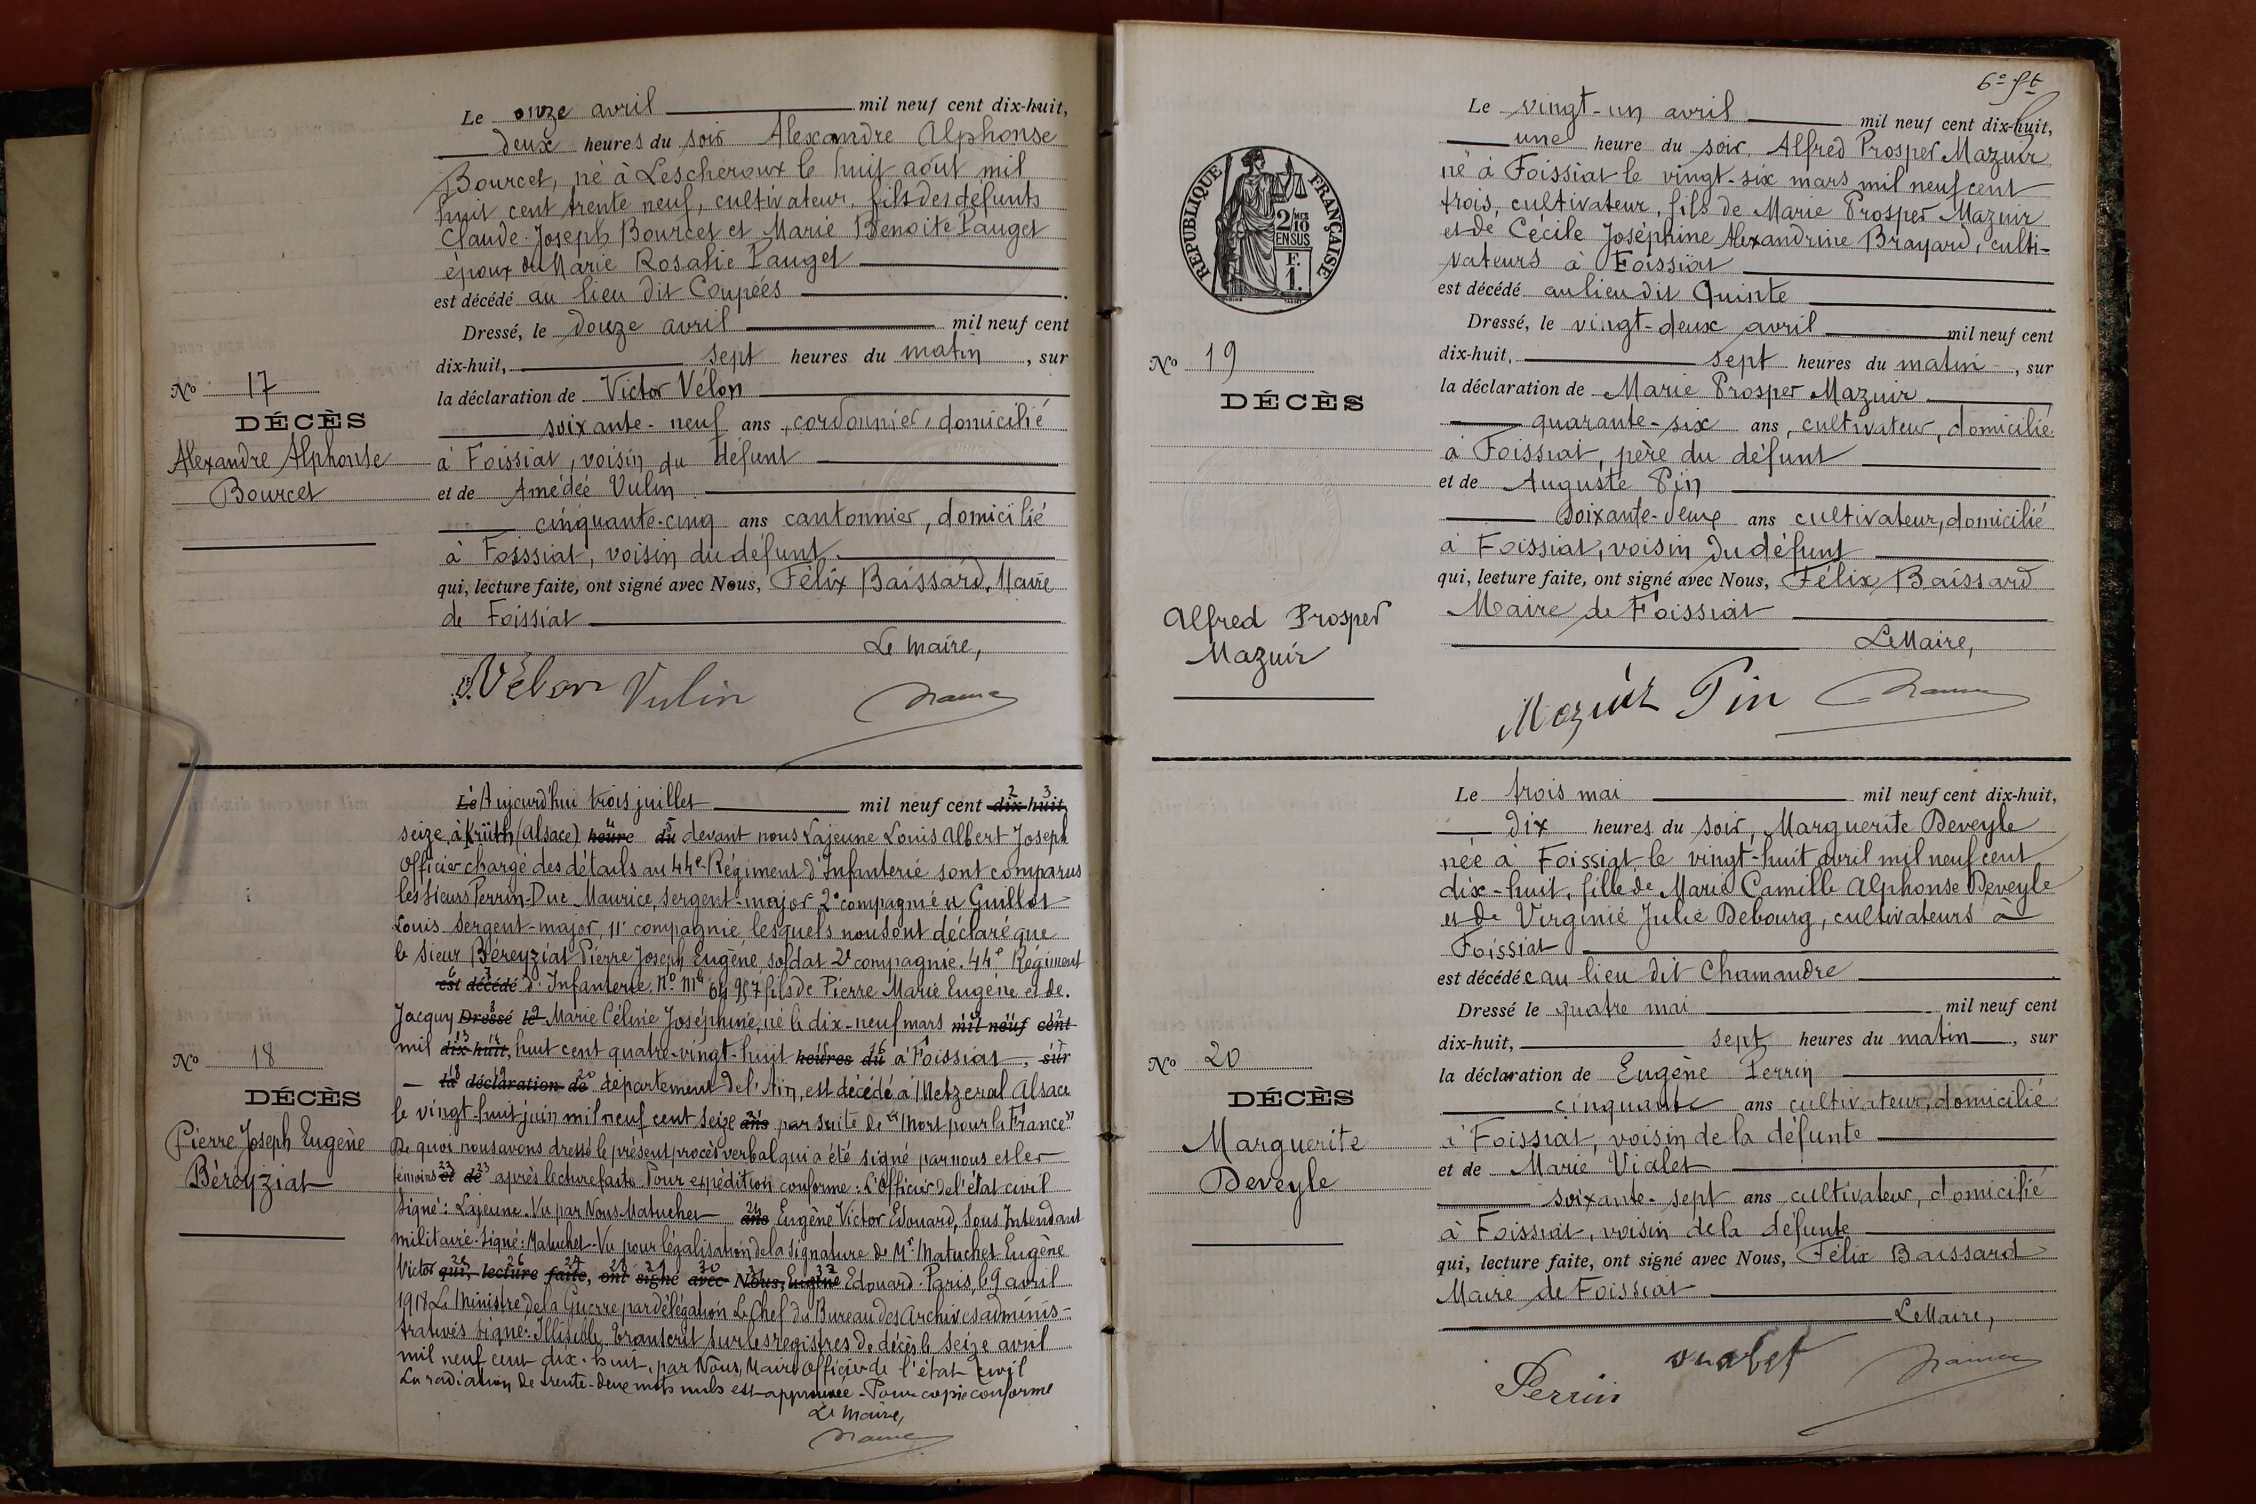 Le onze avril mil neuf cent dix-huit,
deux heures du soir Alexandre Alphonse
Bourcet, né à Lescheroux le huit août mil
huit cent trente neuf, cultivateur, fils des défunts
Claude-Joseph Bourcet et Marie Benoite Pauget
époux de Marie Rosalie Pauget
est décédé au lieu dit Coupées
Dressé, le douze avril mil neuf cent
dix-huit, sept heures du matin, sur
la déclaration de Victor Vélon
soixante-neuf ans, cordonnier, domicilié
à Foissiat, voisin du défunt
et de Amédée Vulin
cinquante-cinq ans cantonnier, domicilié
à Foissiat, voisin du défunt
qui, lecture faite, ont signé avec Nous, Félix Baissard, Maire
de Foissiat
Le maire,
Vélon Vulin
No 17
DÉCÈS
Alexandre Alphonse
Bourcet
Le Aujourd'hui trois juillet mil neuf cent dix-huit,
seize, à Krüth (Alsace) heure du devant nous Lajeune Louis Albert Joseph
Officier chargé des détails au 44e Régiment d'Infanterie sont comparus
les sieurs Perrin-Duc Maurice, sergent-major, 2e compagnie et Guillot
Louis sergent-major, 11e compagnie, lesquels nous ont déclaré que
le sieur Béreyziat Pierre Joseph Eugène, soldat 2e compagnie. 44e Régiment
est décédé d'Infanterie. No Mle 957 fils de Pierre Marie Eugène et de
Jacquy Dressé le Marie Céline Joséphine, né le dix-neuf mars mil neuf cent
mil dix-huit, huit cent quatre-vingt-huit heures du à Foissiat, sur
la déclaration de département de l'Ain, est décédé à Metzeral Alsace
le vingt-huit juin mil neuf cent seize ans par suite de "Mort pour la France"
De quoi nous avons dressé le présent procès verbal qui a été signé par nous et les
témoins et de après lecture faite. Pour expédition conforme. L'Officier de l'état civil
Signé: Lajeune. Vu par Nous Matuchet ans Eugène Victor Edouard, Sous Intendant
militaire. Signé: Matuchet. Vu pour légalisation de la signature de Mr Matuchet Eugène
Victor qui, lecture faite, ont signé avec Nous, Eugène Edouard. Paris, le 9 avril
1918 Le Ministre de la Guerre par délégation Le Chef du Bureau des Archives adminis-
tratives signé: Illisible. Transcrit sur les registres de décès le seize avril
mil neuf cent dix-huit, par Nous, Maire Officier de l'état civil
La radiation de trente-deux mots nuls est approuvée - Pour copie conforme
Le Maire,
No 18
DÉCÈS
Pierre Joseph Eugène
Béreyziat
6e ft
RÉPUBLIQUE FRANÇAISE
2/10
EN SUS
F.
1.
Le vingt-un avril mil neuf cent dix-huit,
une heure du soir, Alfred Prosper Mazuir
né à Foissiat le vingt-six mars mil neuf cent
trois, cultivateur, fils de Marie Prosper Mazuir
et de Cécile Joséphine Alexandrine Brayard, culti-
vateurs à Foissiat
est décédé au lieu dit Quinte
Dressé, le vingt-deux avril mil neuf cent
dix-huit, sept heures du matin, sur
la déclaration de Marie Prosper Mazuir
quarante-six ans, cultivateur, domicilié
à Foissiat, père du défunt
et de Auguste Pin
soixante-deux ans cultivateur, domicilié
à Foissiat, voisin du défunt
qui, lecture faite, ont signé avec Nous, Félix Baissard
Maire de Foissiat
Le Maire,
Mazuir Pin
No 19
DÉCÈS
Alfred Prosper
Mazuir
Le trois mai mil neuf cent dix-huit,
dix heures du soir, Marguerite Deveyle
née à Foissiat le vingt-huit avril mil neuf cent
dix-huit, fille de Marie Camille Alphonse Deveyle
et de Virginie Julie Debourg, cultivateurs à
Foissiat
est décédée au lieu dit Chamandre
Dressé le quatre mai mil neuf cent
dix-huit, sept heures du matin, sur
la déclaration de Eugène Perrin
cinquante ans cultivateur, domicilié
à Foissiat, voisin de la défunte
et de Marie Vialet
soixante-sept ans cultivateur, domicilié
à Foissiat, voisin de la défunte
qui, lecture faite, ont signé avec Nous, Félix Baissard
Maire de Foissiat
Le Maire,
Perrin vialet
No 20
DÉCÈS
Marguerite
Deveyle